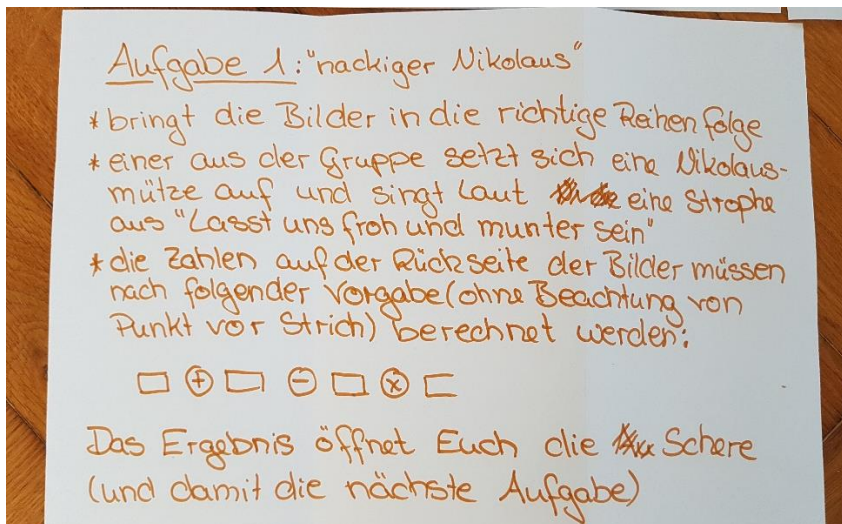 Aufgabe 1: "nackiger Nikolaus"
* bringt die Bilder in die richtige Reihenfolge
* einer aus der Gruppe setzt sich eine Nikolaus-
mütze auf und singt laut eine Strophe
aus "Lasst uns froh und munter sein"
* die Zahlen auf der Rückseite der Bilder müssen
nach folgender Vorgabe (ohne Beachtung von
Punkt vor Strich) berechnet werden:
□ ⊕ □ ⊖ □ ⊗ □
Das Ergebnis öffnet Euch die Schere
(und damit die nächste Aufgabe)